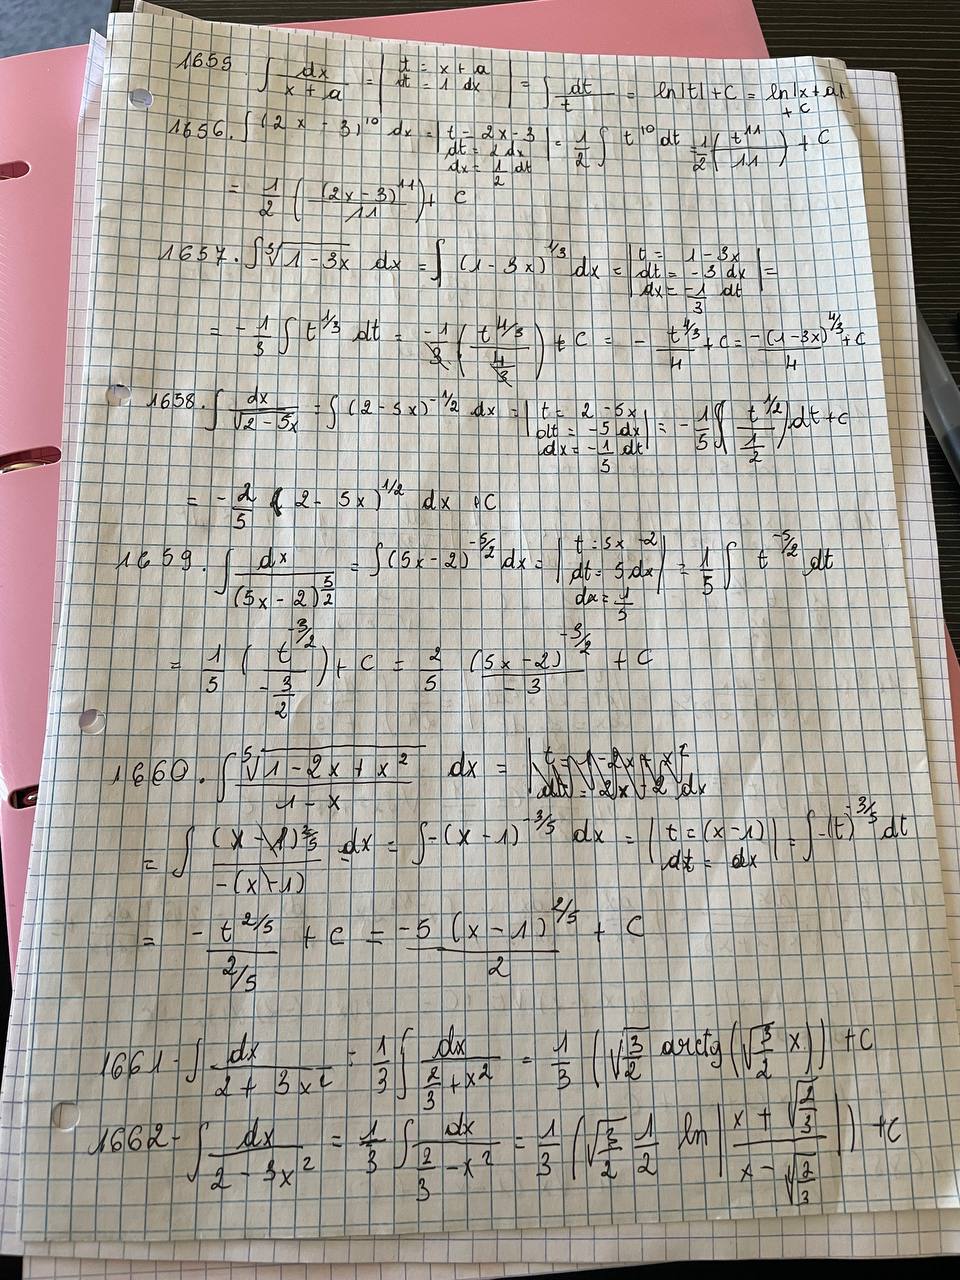 1655. ∫ dx/(x + a) = | t = x + a, dt = 1 dx | = ∫ dt/t = ln|t| + C = ln|x + a| + C
1656. ∫ (2x - 3)^10 dx = | t = 2x - 3, dt = 2 dx, dx = 1/2 dt | = 1/2 ∫ t^10 dt = 1/2 (t^11/11) + C
= 1/2 ((2x - 3)^11/11) + C
1657. ∫ ∛(1 - 3x) dx = ∫ (1 - 3x)^1/3 dx = | t = 1 - 3x, dt = -3 dx, dx = -1/3 dt | =
= -1/3 ∫ t^1/3 dt = -1/3 (t^4/3 / (4/3)) + C = - t^4/3 / 4 + C = -(1 - 3x)^4/3 / 4 + C
1658. ∫ dx/√(2 - 5x) = ∫ (2 - 5x)^-1/2 dx = | t = 2 - 5x, dt = -5 dx, dx = -1/5 dt | = -1/5 ∫ (t^1/2 / (1/2)) dt + C
= -2/5 (2 - 5x)^1/2 dx + C
1659. ∫ dx/(5x - 2)^5/2 = ∫ (5x - 2)^-5/2 dx = | t = 5x - 2, dt = 5 dx, dx = 1/5 | = 1/5 ∫ t^-5/2 dt
= 1/5 (t^-3/2 / (-3/2)) + C = 2/5 (5x - 2)^-3/2 / -3 + C
1660. ∫ ⁵√(1 - 2x + x²) / (1 - x) dx = | t = 1 - 2x + x², dt = 2x - 2 dx
= ∫ (x - 1)^2/5 / -(x - 1) dx = ∫ -(x - 1)^-3/5 dx = | t = (x - 1), dt = dx | = ∫ -(t)^-3/5 dt
= -t^2/5 / (2/5) + C = -5 (x - 1)^2/5 / 2 + C
1661 - ∫ dx/(2 + 3x²) = 1/3 ∫ dx/(2/3 + x²) = 1/3 (√(3/2) arctg(√(3/2) x)) + C
1662 - ∫ dx/(2 - 3x²) = 1/3 ∫ dx/(2/3 - x²) = 1/3 (√(3/2) 1/2 ln |(x + √(2/3))/(x - √(2/3))|) + C